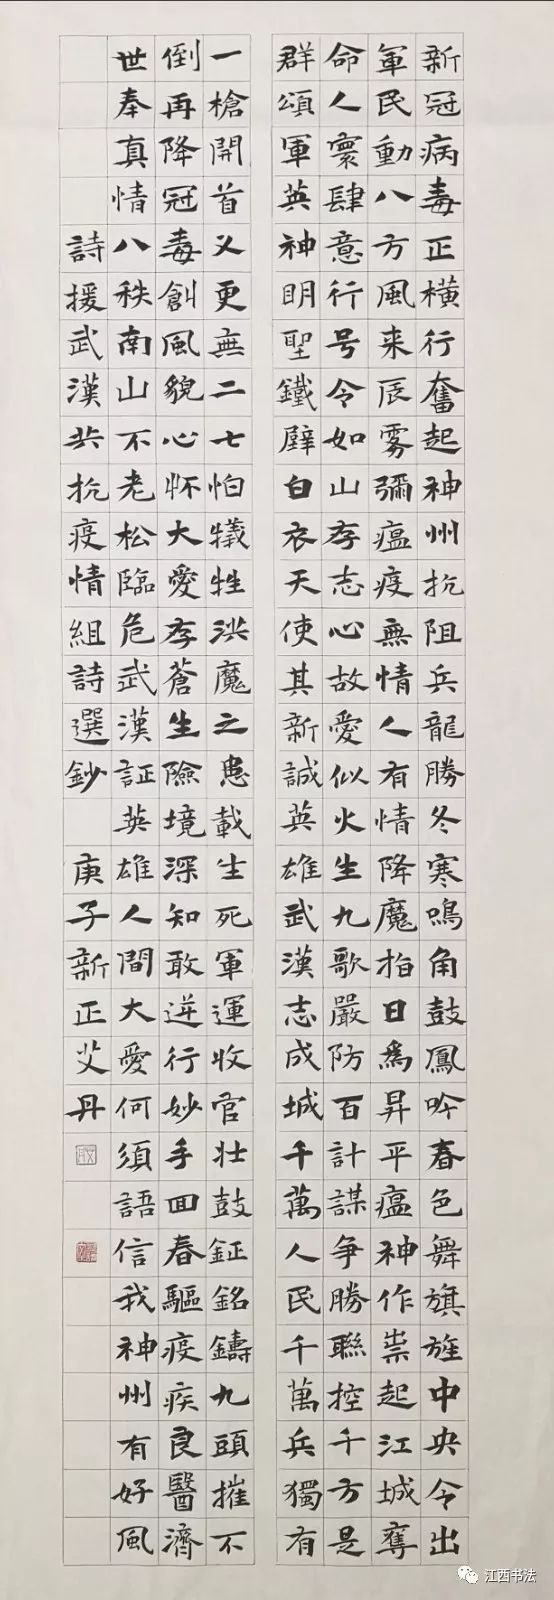 新冠病毒正橫行奮起神州抗阻兵龍勝冬寒鳴角鼓鳳吟春色舞旗旌中央令出
軍民動八方風来辰雾彌瘟疫無情人有情降魔指日為昇平瘟神作祟起江城奪
命人寰肆意行号令如山存志心故愛似火生九歌嚴防百計謀争勝聯控千方是
群頌軍英神明聖鐵壁白衣天使其新誠英雄武漢志成城千萬人民千萬兵獨有
一槍開首义更無二七怕犠牲洪魔之患載生死軍運收官壮鼓鉦銘鑄九頭摧不
倒再降冠毒創風貌心怀大愛存蒼生險境深知敢逆行妙手回春驅疫疾良醫濟
世奉真情八秩南山不老松臨危武漢証英雄人間大愛何須語信我神州有好風
詩援武漢共抗疫情組詩選鈔 庚子新正艾丹
江西书法